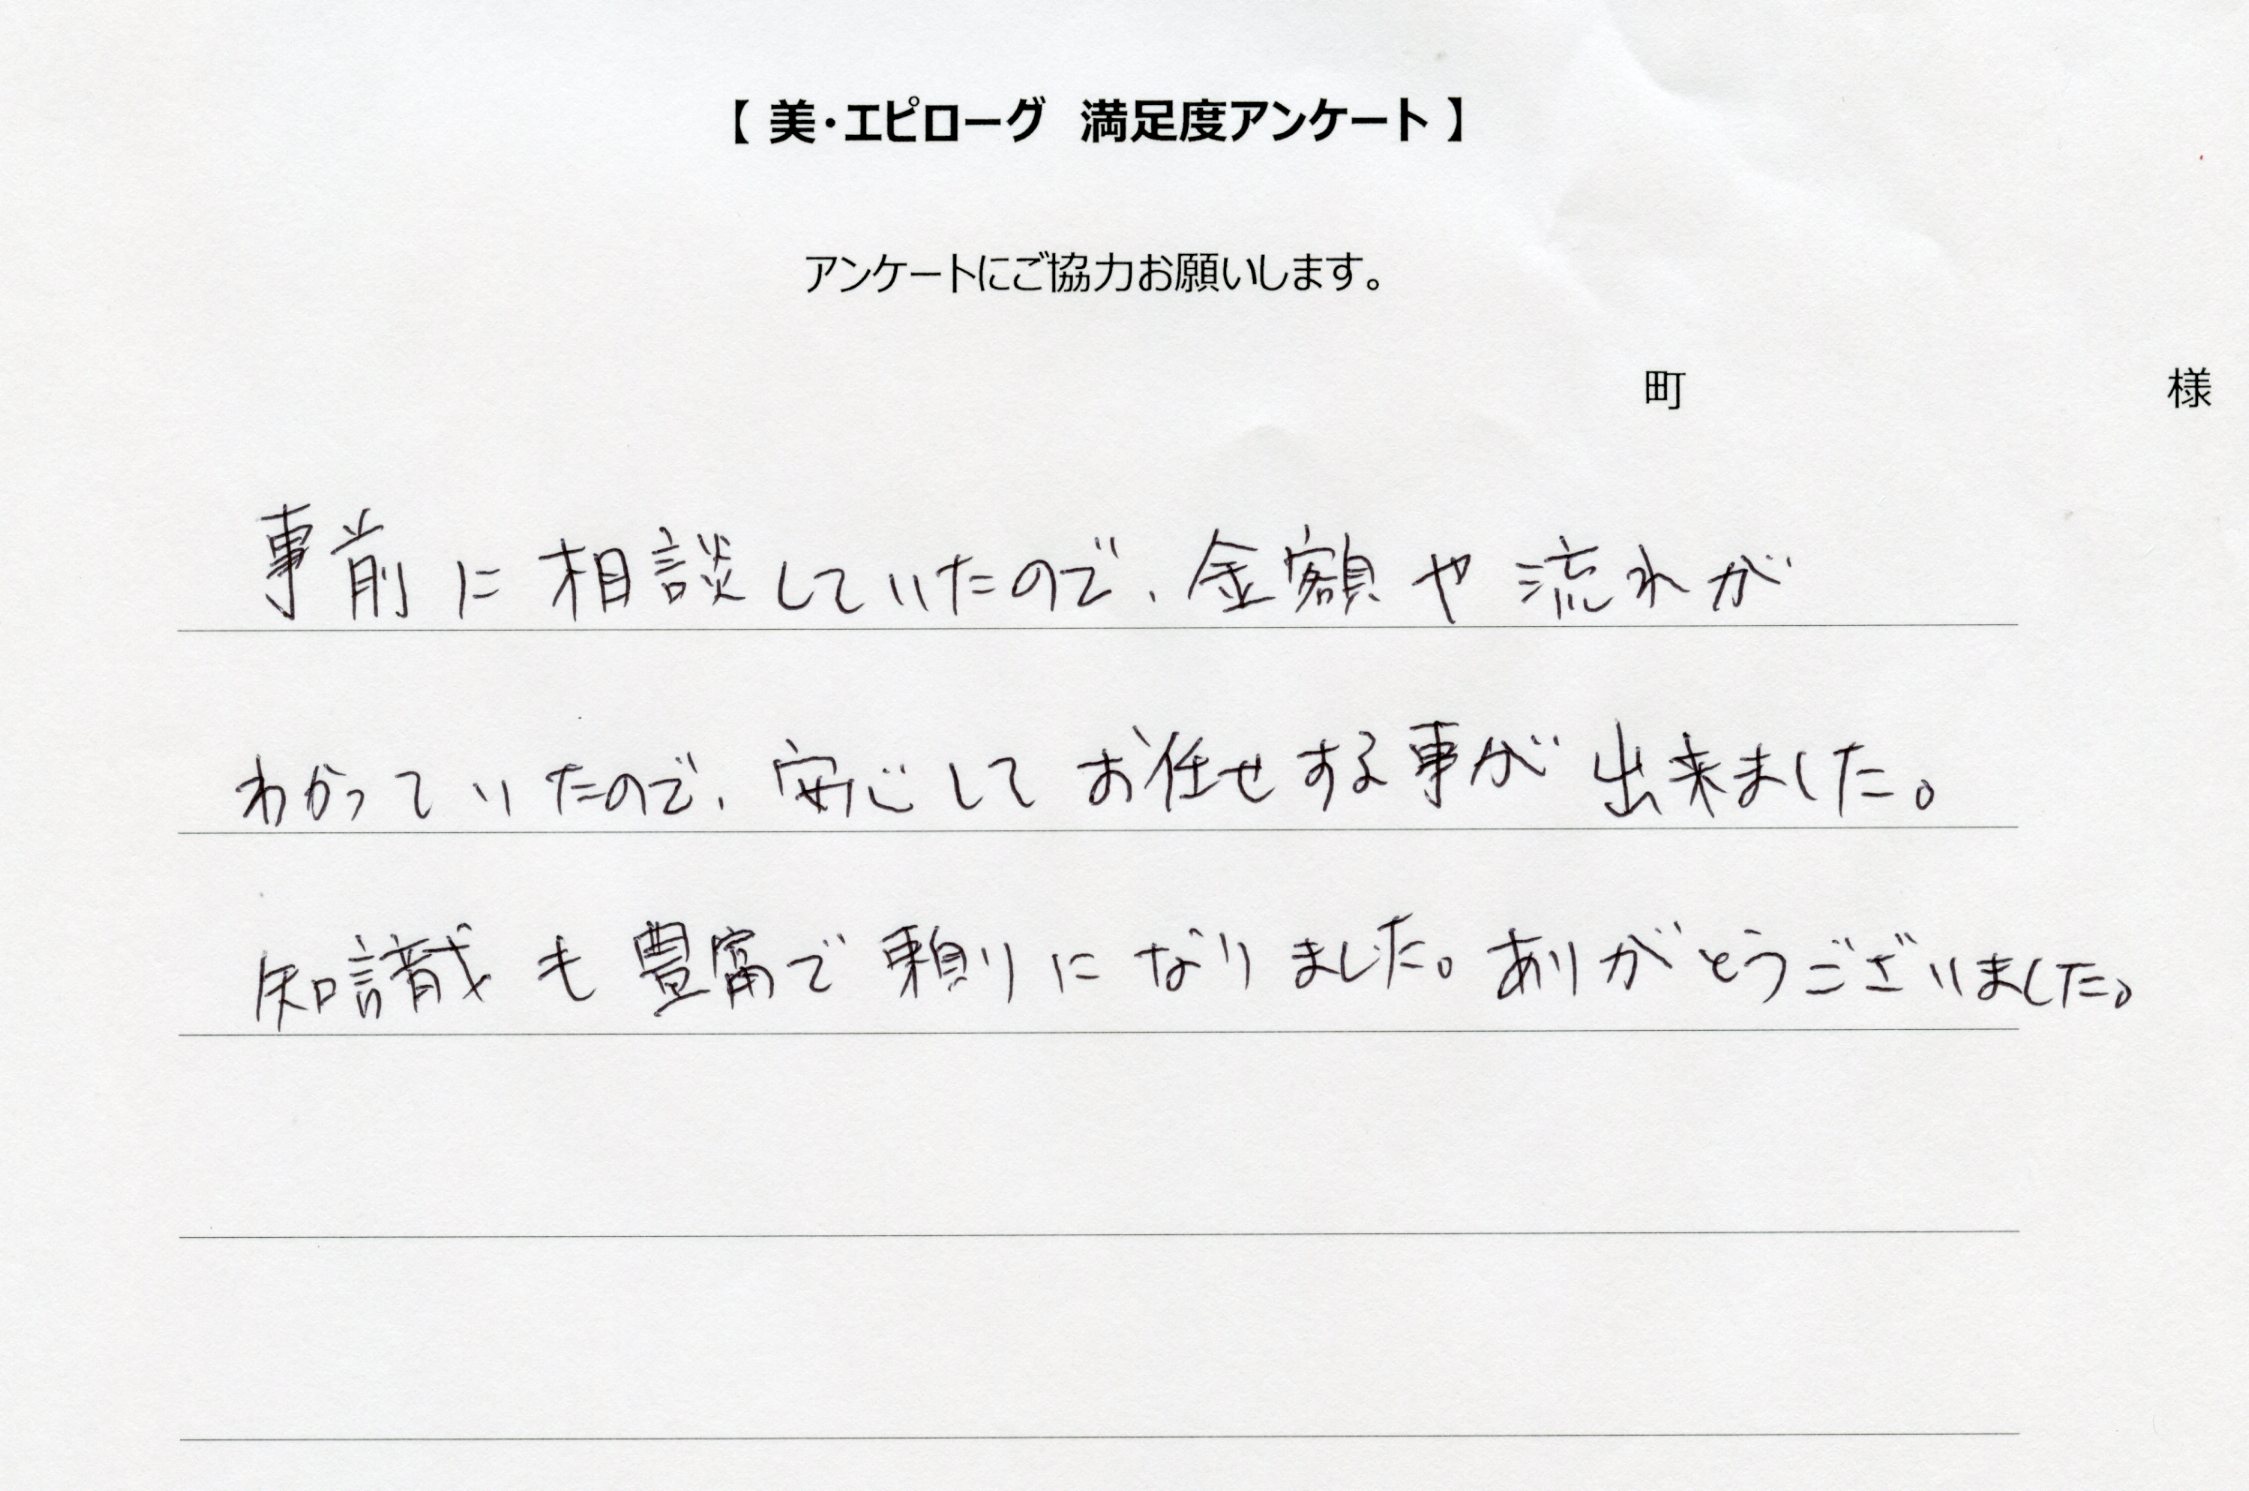 【 美・エピローグ 満足度アンケート 】
アンケートにご協力お願いします。
町 様
事前に相談していたので、金額や流れが
わかっていたので、安心してお任せする事が出来ました。
知識も豊富で頼りになりました。ありがとうございました。